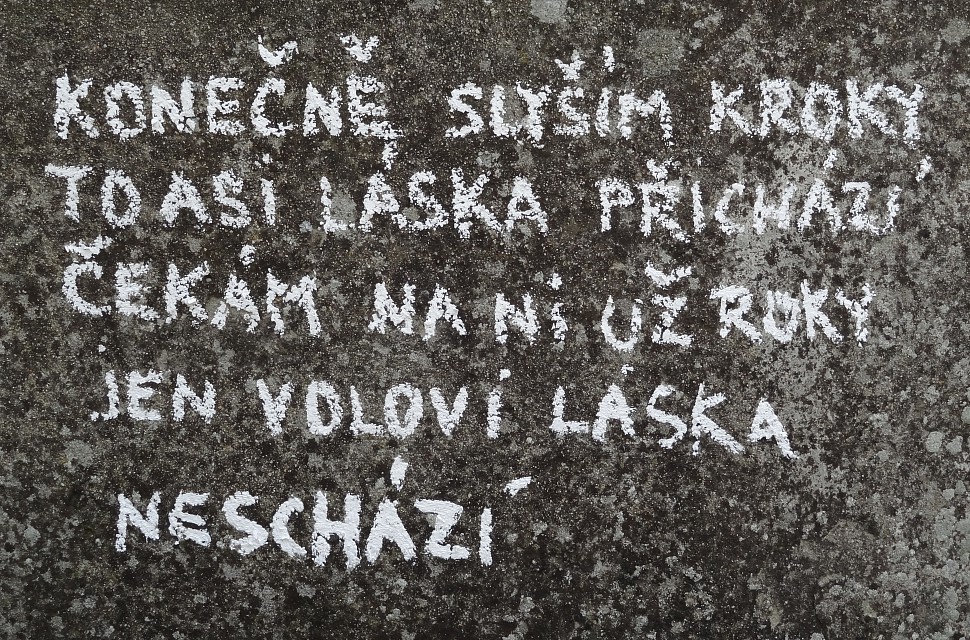 KONEČNĚ SLYŠÍM KROKY
TO ASI LÁSKA PŘICHÁZÍ
ČEKÁM NA NI UŽ ROKY
JEN VOLOVI LÁSKA
NESCHÁZÍ